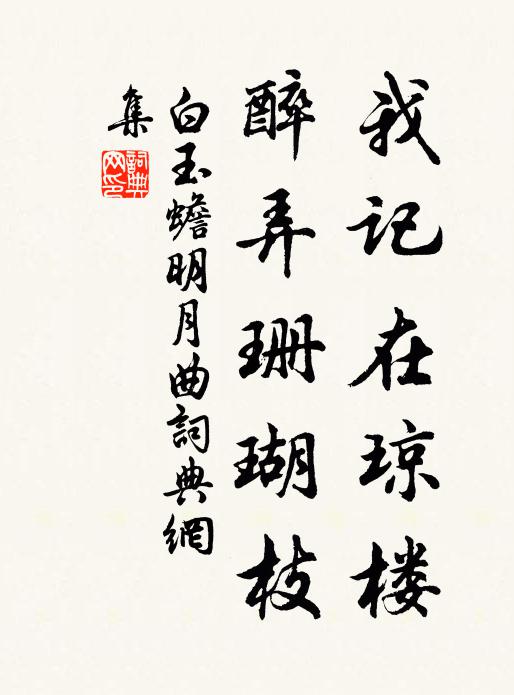 我记在琼楼
醉弄珊瑚枝
白玉蟾明月曲詞典網
集
詞典網印